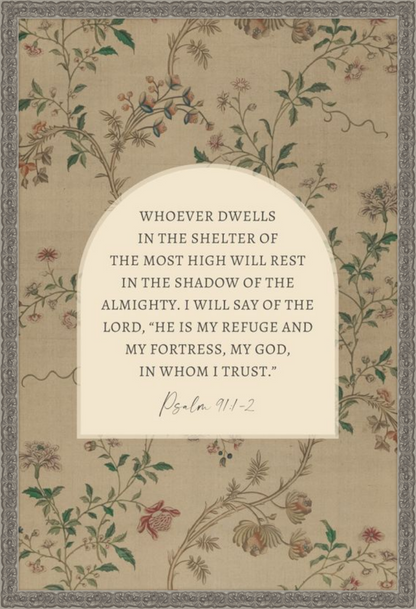 WHOEVER DWELLS
IN THE SHELTER OF
THE MOST HIGH WILL REST
IN THE SHADOW OF THE
ALMIGHTY. I WILL SAY OF THE
LORD, “HE IS MY REFUGE AND
MY FORTRESS, MY GOD,
IN WHOM I TRUST.”
Psalm 91:1-2